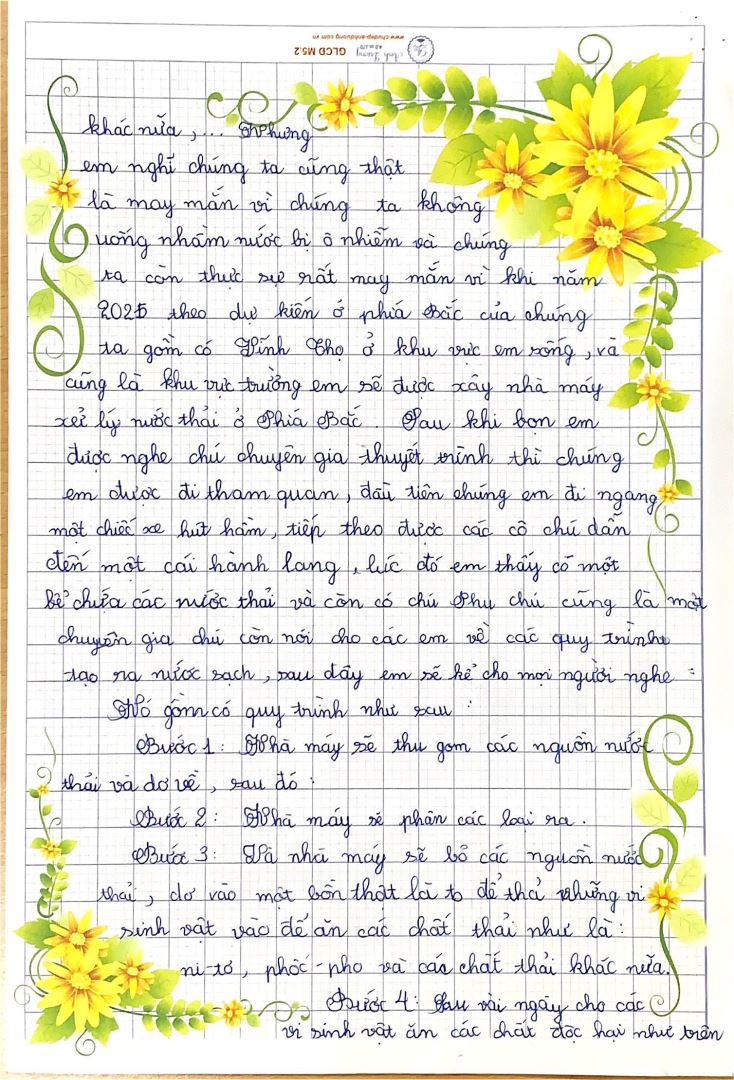 www.chudep-anhduong.com.vn
GLCD M5.2
Ánh Dương
khác nữa, ... Nhưng
em nghĩ chúng ta cũng thật
là may mắn vì chúng ta không
uống nhầm nước bị ô nhiễm và chúng
ta còn thực sự rất may mắn vì khi năm
2025 theo dự kiến ở phía Bắc của chúng
ta gồm có Vĩnh Thọ ở khu vực em sống, và
cũng là khu vực trường em sẽ được xây nhà máy
xử lý nước thải ở Phía Bắc. Sau khi bọn em
được nghe chú chuyên gia thuyết trình thì chúng
em được đi tham quan, đầu tiên chúng em đi ngang
một chiếc xe hút hầm, tiếp theo được các cô chú dẫn
đến một cái hành lang, lúc đó em thấy có một
bể chứa các nước thải và còn có chú Phụ chú cũng là một
chuyên gia chú còn nói cho các em về các quy trình
tạo ra nước sạch, sau đây em sẽ kể cho mọi người nghe:
Nó gồm có quy trình như sau:
Bước 1: Nhà máy sẽ thu gom các nguồn nước
thải và dơ về, sau đó:
Bước 2: Nhà máy sẽ phân các loại ra.
Bước 3: Và nhà máy sẽ bỏ các nguồn nước
thải, dơ vào một bồn thật là to để thả những vi
sinh vật vào để ăn các chất thải như là:
ni-tơ, phốc-pho và các chất thải khác nữa.
Bước 4: Sau vài ngày cho các
vi sinh vật ăn các chất độc hại như trên